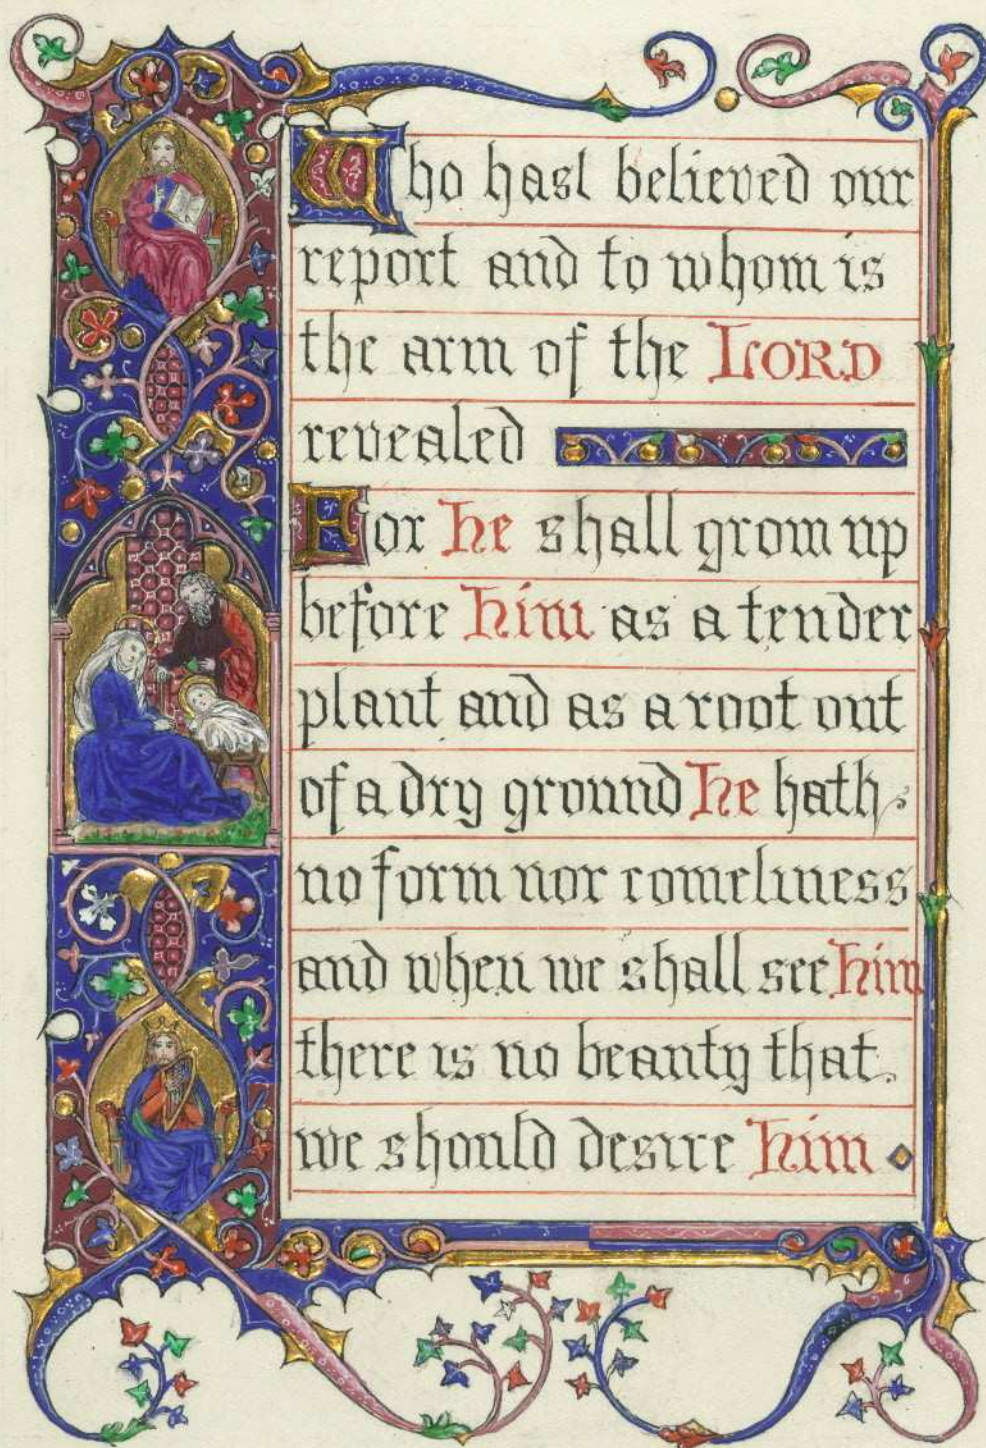 Who hast believed our
report and to whom is
the arm of the LORD
revealed
For he shall grow up
before him as a tender
plant and as a root out
of a dry ground he hath
no form nor comeliness
and when we shall see him
there is no beauty that
we should desire him